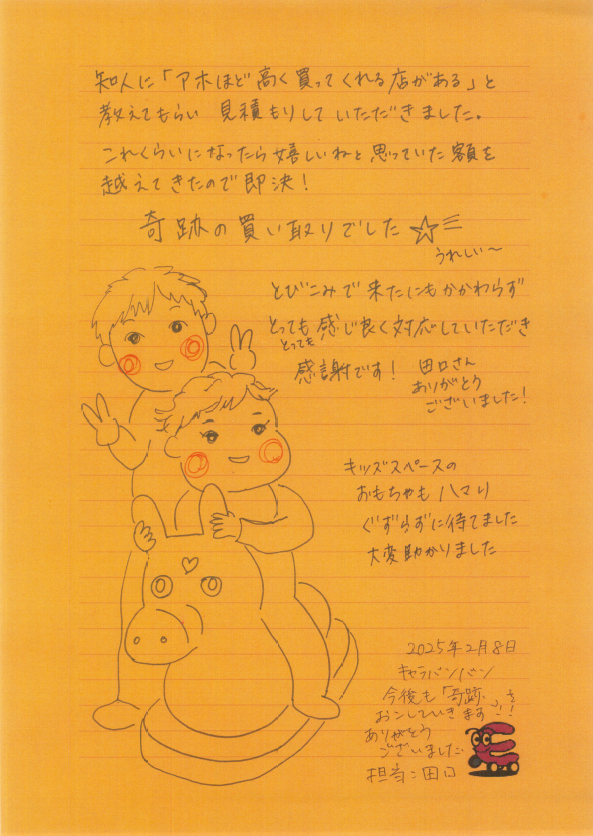 知人に「アホほど高く買ってくれる店がある」と
教えてもらい 見積もりして いただきました。
これくらいになったら嬉しいねと思っていた額を
越えてきたので即決！
奇跡の買い取りでした☆
うれしい〜
とびこみで来たにもかかわらず
とっても感じ良く対応していただき
とっても
感謝です！ 田口さん
ありがとう
ございました！
キッズスペースの
おもちゃも ハマり
ぐずらずに待てました
大変助かりました
2025年2月8日
キャラバンバン
今後も「奇跡」を
おこしていきます!!
ありがとう
ございました
担当：田口